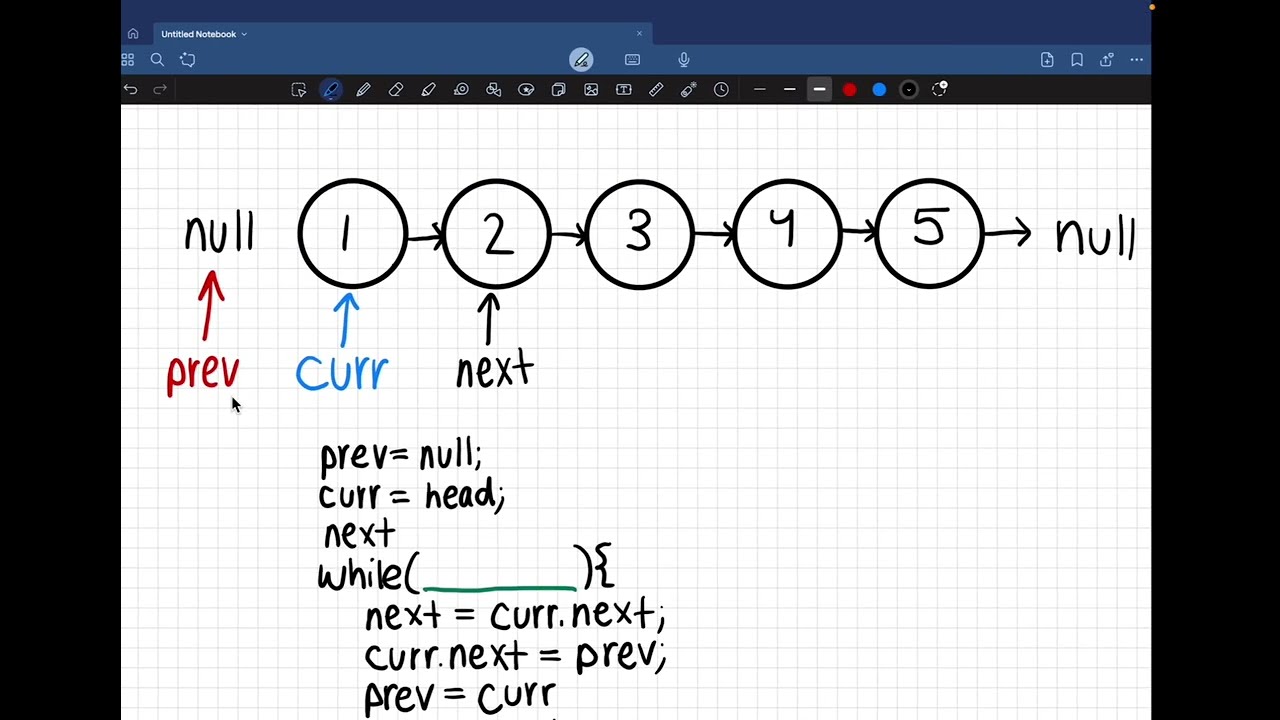 Untitled Notebook
null 1 2 3 4 5 null
prev curr next
prev = null;
curr = head;
next
while(________){
next = curr.next;
curr.next = prev;
prev = curr